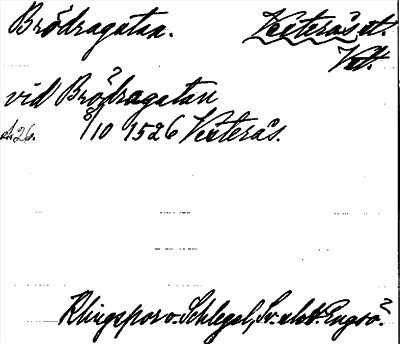 Brödragatan. Vesterås st.
Vstt.
vid Brödragatan
s. 26. 8/10 1526 Vesterås.
Klingspor o. Schlegel, Sv. slott. Engsö?